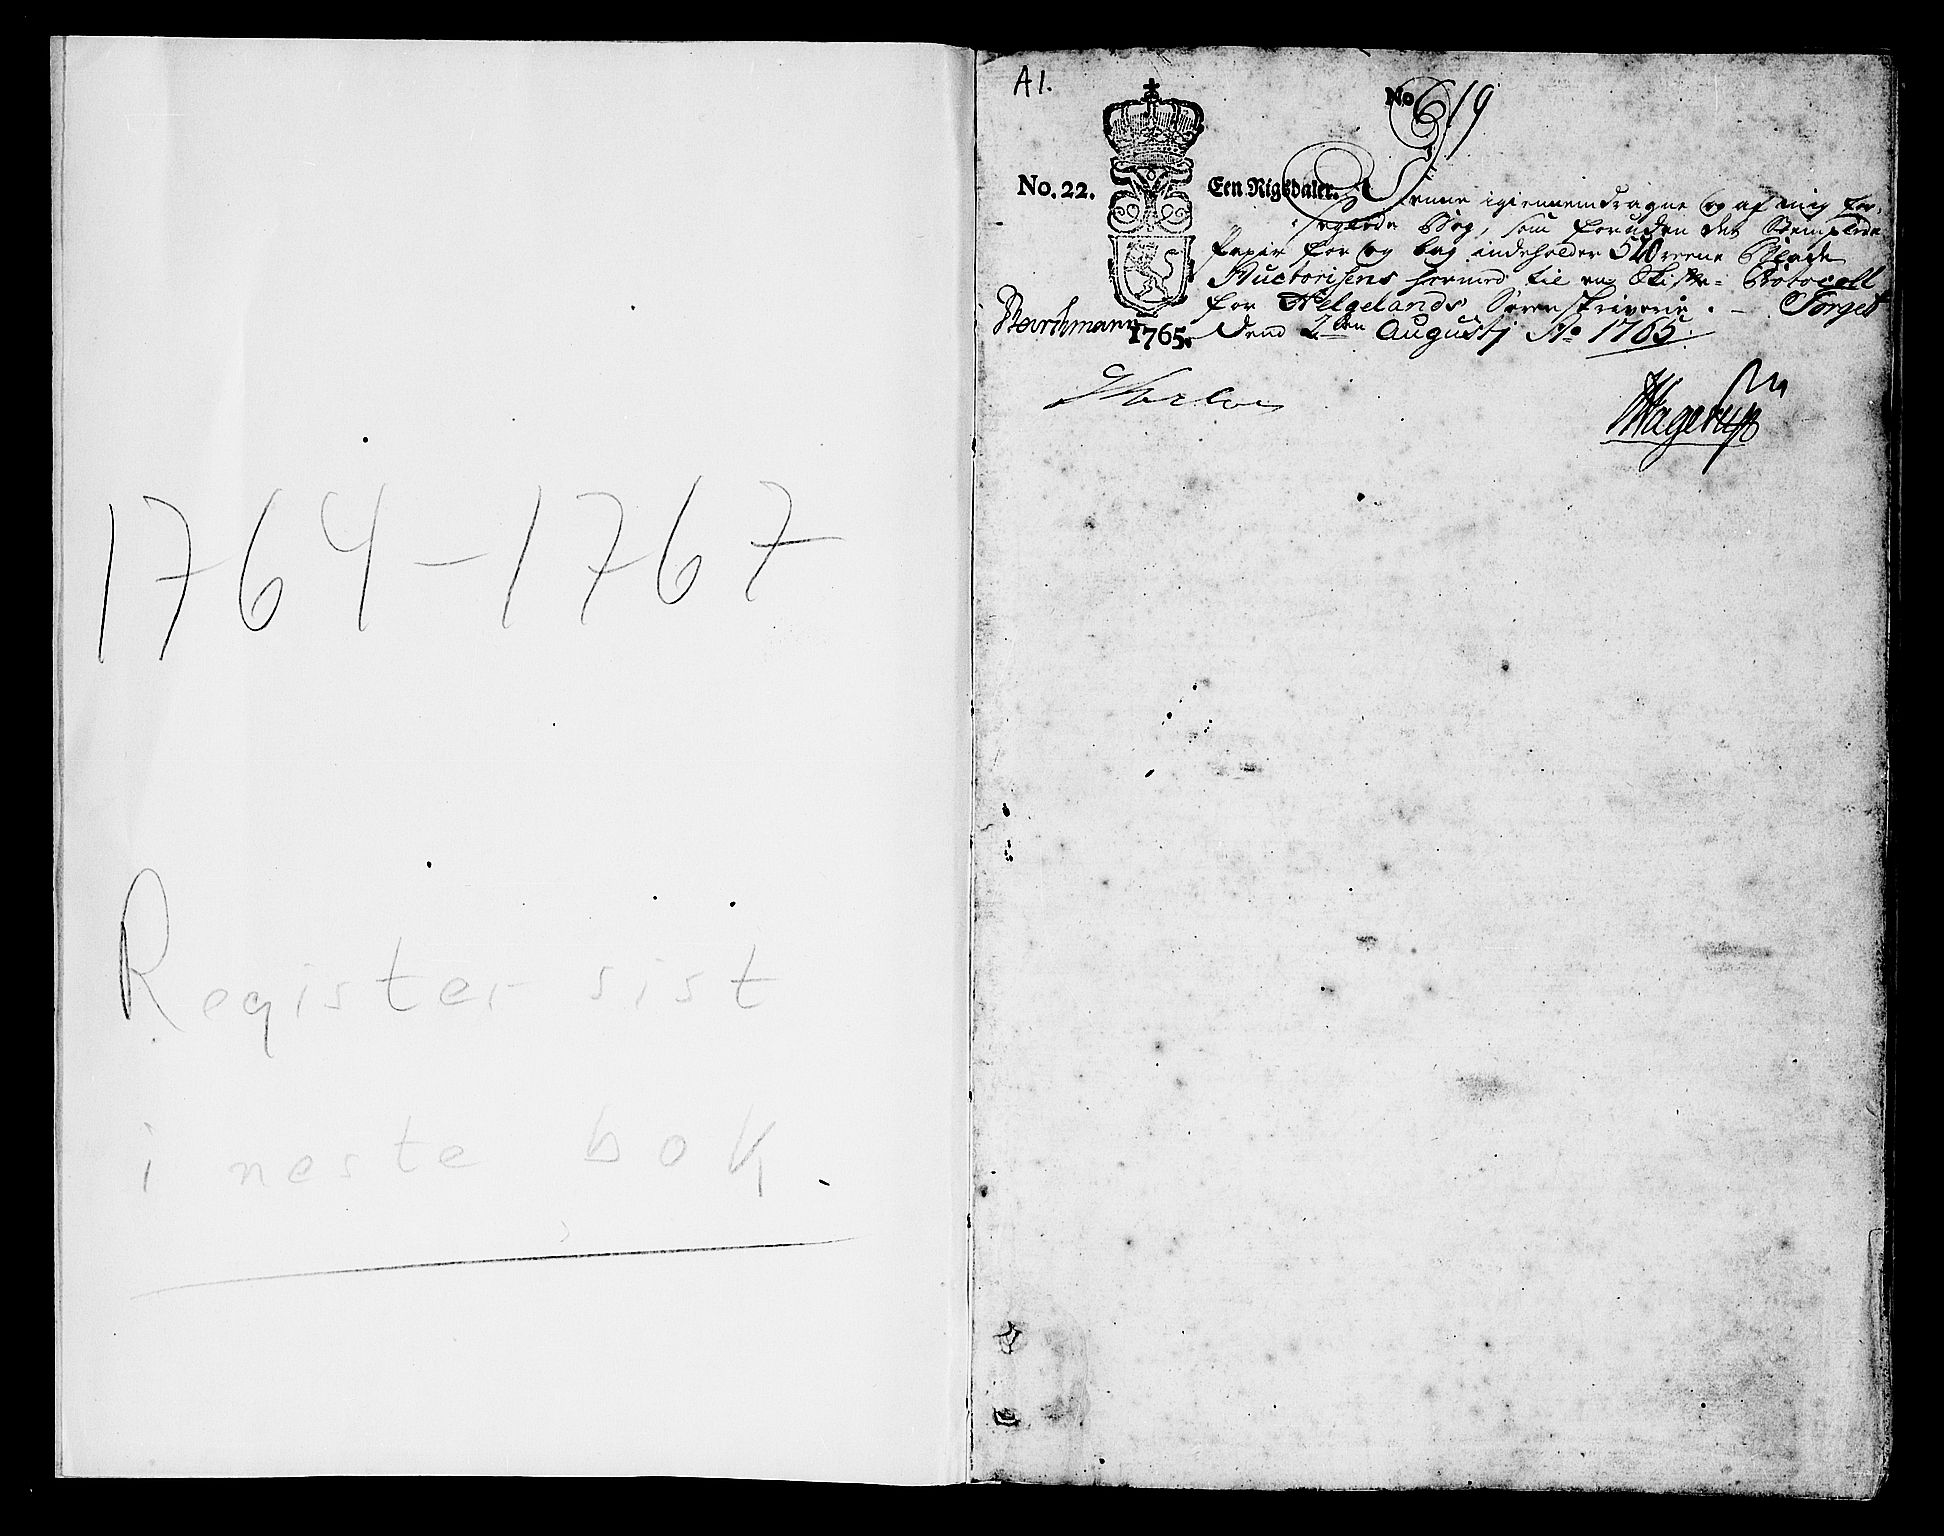 1764-1767
Register sist
i neste bok.
A1.
No 619
No. 22.
Een Rigsdaler.
Denne igiennemdragne og af mig for-
seglede Bog, som foruden det Stemplede
Papir for og bag indeholder reene Blade
Auctoriseres hermed til en Skifte-Protocoll
for Helgelands Sorenskriverie. - Torget
Dend 2den Augustj Ao 1765.
1765.
Hagerup